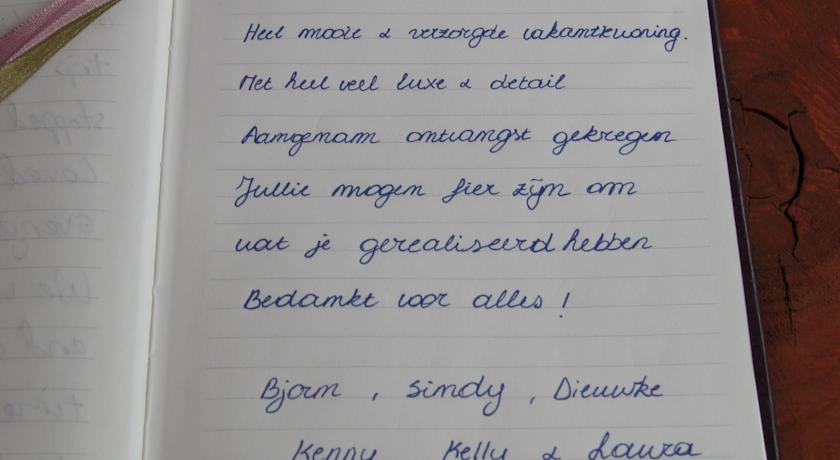 Heel mooie & verzorgde vakantiewoning.
Met heel veel luxe & detail
Aangenaam ontvangst gekregen
Jullie mogen fier zijn om
wat je gerealiseerd hebben
Bedankt voor alles !
Bjorn , Sindy , Dieuwke
Kenny Kelly & Laura